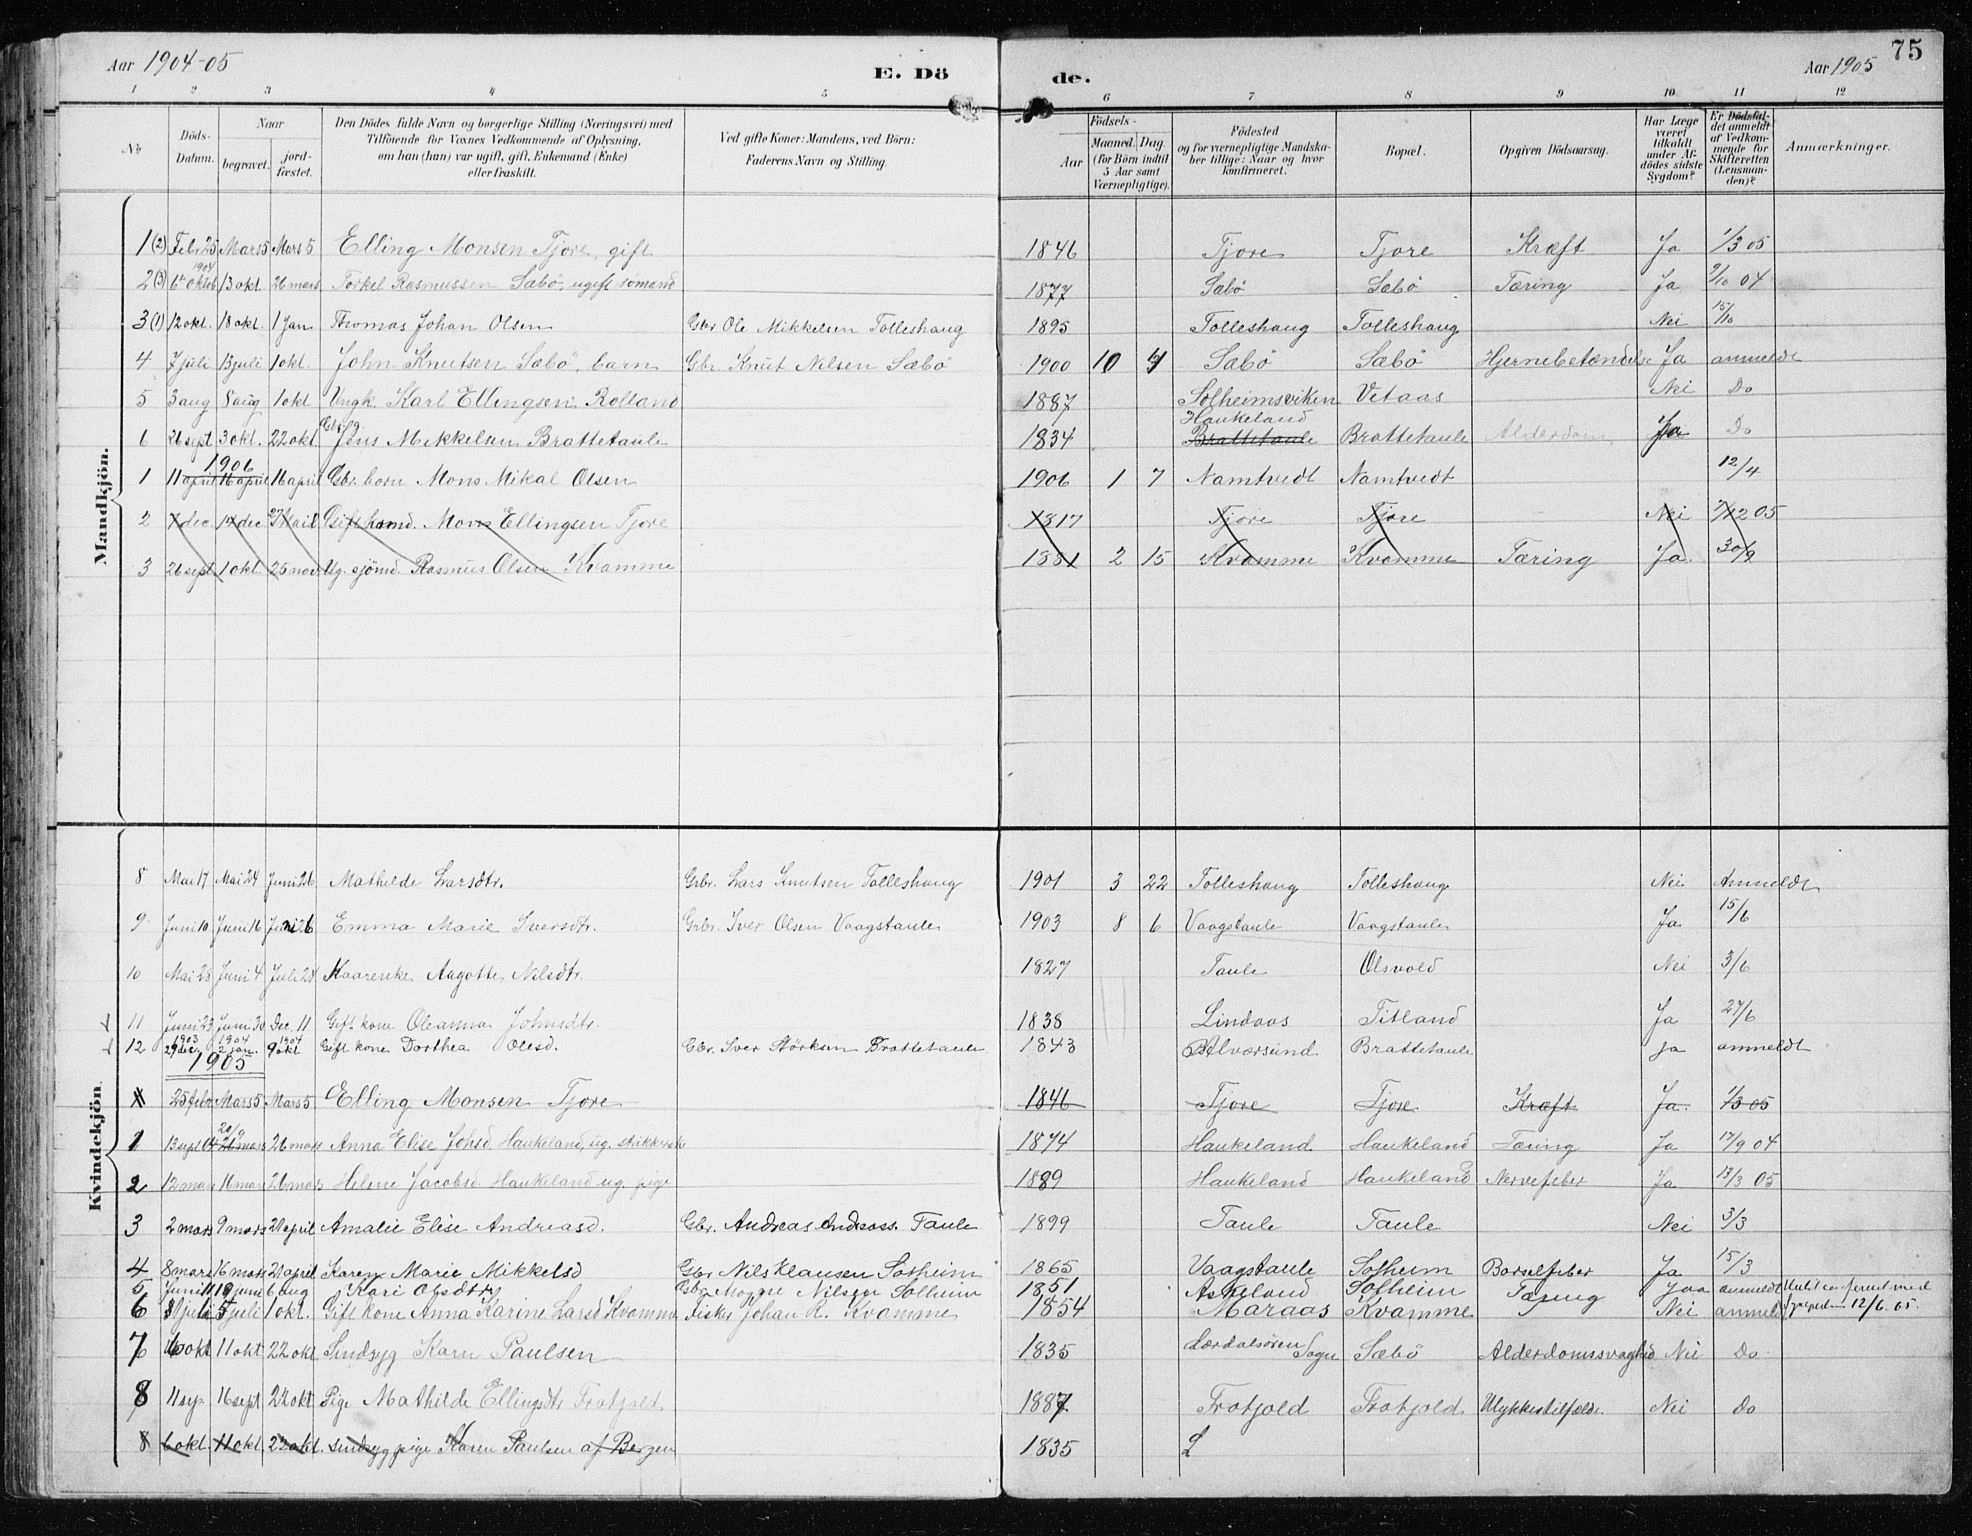 Aar 1904-05
E. Dö
de.
Aar 1905
75
1 2 3 4 5 6 7 8 9 10 11 12
No
Döds-Datum.
Naar
begravet.
jord-fæstet.
Den Dödes fulde Navn og borgerlige Stilling (Næringsvei) med
Tilföiende for Voxnes Vedkommende af Oplysning,
om han (hun) var ugift, gift, Enkemand (Enke)
eller fraskilt.
Ved gifte Koner: Mandens, ved Börn:
Faderens Navn og Stilling.
Födsels-
Aar
Maaned. Dag.
(for Börn indtil
5 Aar samt
Værnepligtige).
Födested
og for værnepligtige Mandska-
ber tillige: Naar og hvor
konfirmeret.
Bopæl.
Opgiven Dödsaarsag.
Har Læge
været
tilkaldt
under Af-
dödes sidste
Sygdom?
Er Dödsfal-
det anmeldt
af Vedkom-
mende for
Skifteretten
(Lensman-
den)?
Anmærkninger.
Mandkjön.
1 (2) Febr 25 Mars 5 Mars 5 Elling Monsen Tjore, gift 1846 Tjore Tjore Kræft Ja 1/3 05
1904
2 (3) 6te oktob 13 okt. 26 mars Torkel Rasmussen Sæbö, ugift sömand 1877 Sæbö Sæbö Tæring Ja 9/10 04
3 (1) 12 okt. 18 okt. 1 Jan Thomas Johan Olsen Gbr Ole Mikkelsen Tolleshaug 1895 Tolleshaug Tolleshaug Nei 15/10
4 7 juli 13 juli 1 okt. John Knutsen Sæbö, barn Gbr. Knut Nilsen Sæbö 1900 10 Sæbö Sæbö Hjernebetændelse Ja anmeldt
5 3 aug 8 aug 1 okt Ungk. Karl Ellingsen Rolland 1887 Solheimsviken Vetaas Nei Do
6 26 sept 3 okt. 22 okt. Jens Mikkelsen Brattetaule 1834 Haukeland Brattetaule Brattetaule Alderdom Ja Do
1906
1 11 april 16 april 16 april Gbr. barn Mons Mikal Olsen 1906 1 7 Namtvedt Namtvedt 12/4
2 7 dec. 14 dec Gift hamd. Mons Ellingsen Tjore 1817 Tjore Tjore Nei 7/12 05
3 26 sept. 1 okt. 25 nov. Ug. sjömd. Rasmus Olsen Kvamme 1881 2 15 Kvamme Kvamme Tæring Ja. 30/9
Kvindekjön.
8 Mai 17 Mai 24 Juni 26 Mathilde Larsdtr. Grbr. Lars Knutsen Tolleshaug 1901 3 22 Tolleshaug Tolleshaug Nei Anmeldt
9 Juni 10 Juni 16 Juni 26 Emma Marie Iversdtr. Grbr. Iver Olsen Vaagstaule 1903 8 6 Vaagstaule Vaagstaule Ja 15/6
10 Mai 28 Juni 4 Juli 24 Kaarenke Aagotte Nilsdtr. 1827 Taule Olsvold Nei 3/6
11 Juni 23 Juni 30 Dec. 11 Gift kone Oleanna Johnsdtr. 1838 Lindaas Titland Ja 27/6
1903 1904 1904
12 29 dec. 2 jan. 9 okt Gift kone Dorthea Olesd. Gbr. Iver Störksen Brattetaule 1843 Alværsund Brattetaule ja anmeldt
1905
25 febr Mars 5 Mars 5 Elling Monsen Tjore 1846 Tjore Tjore Kræft Ja 1/3 05
1 13 sept 04 20/9 26 mars 26 mars Anna Elise Johsd. Haukeland, ug. 1874 Haukeland Haukeland Tæring Ja 17/9 04
2 12 mars 16 mars 26 mars Helene Jacobsd. Haukeland ug. pige 1889 Haukeland Haukeland Nervefeber Ja 13/3 05
3 2 mars 9 mars 21 april Amalie Elise Andreasd. Gbr. Andreas Andreass. Taule 1899 Taule Taule Nei 3/3
4 8 mars 16 mars 21 april Karen Marie Mikkelsd Gbr Nils Klausen Solheim 1865 Vaagstaule Solheim Barselfeber Ja 15/3
5 Juni 11 19 juni 6 aug Kari Olsdtr Gbr. Mogne Nilsen Solheim 1851 Askeland Solheim Tæring Jaa anmeldt
6 juli juli 1 okt. Gift kone Anna Karine Larsd Kvamme fisker Johan R. Kvamme 1854 Maraas Kvamme Nei anmeldt 12/6. 05.
7 6 okt 11 okt 22 okt. Sindsyg Karn Paulsen 1835 Lærdalsören Sogn Sæbö Alderdomssvaghed Nei Do
8 11 sep. 16 sept 22 okt Pige Mathilde Ellingsdtr Frotjold 1887 Frotjold Frotjold. Ulykkestilfælde. Nei Do
8 6 okt. 11 okt. 22 okt. sindsyg pige Karen Paulsen af Bergen 1835 L